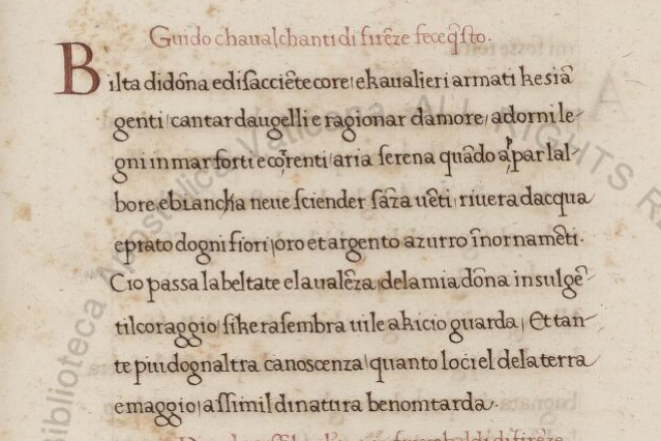 Guido chaualchanti di firẽze fece q̃sto.
Bilta di dõna e di sacciẽte core e kaualieri armati ke siã
genti cantar daugelli e ragionar damore adorni le-
gni in mar forti e correnti aria serena quãdo apar lal-
bore e biancha neue sciender sãza uẽti riuera dacqua
e prato dogni fiori oro et argento azurro ĩnornamẽti.
Cio passa la beltate e la ualẽza dela mia dõna in su lgẽ-
til coraggio si ke rasembra uile a ki cio guarda Et tan-
te piu dognaltra canoscenza quanto lo ciel dela terra
e maggio a ssimil di natura ben om tarda.
Biblioteca Apostolica Vaticana ALL RIGHTS R